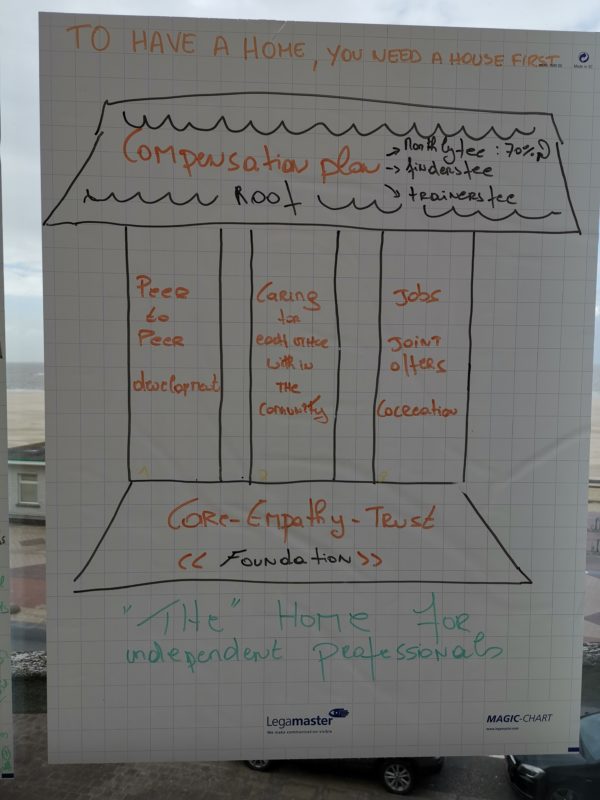 TO HAVE A HOME, YOU NEED A HOUSE FIRST
Compensation plan
→ Monthly fee : 70%
→ finders fee
→ trainers fee
Roof
Peer
to
Peer
development
Caring
for
each other
with in
THE
Comunity
Jobs
JOINT
offers
Cocreation
Core-Empathy-Trust
<< Foundation >>
"THE" Home for
independent professionals
Legamaster
We make communication visible
MAGIC-CHART
www.legamaster.com